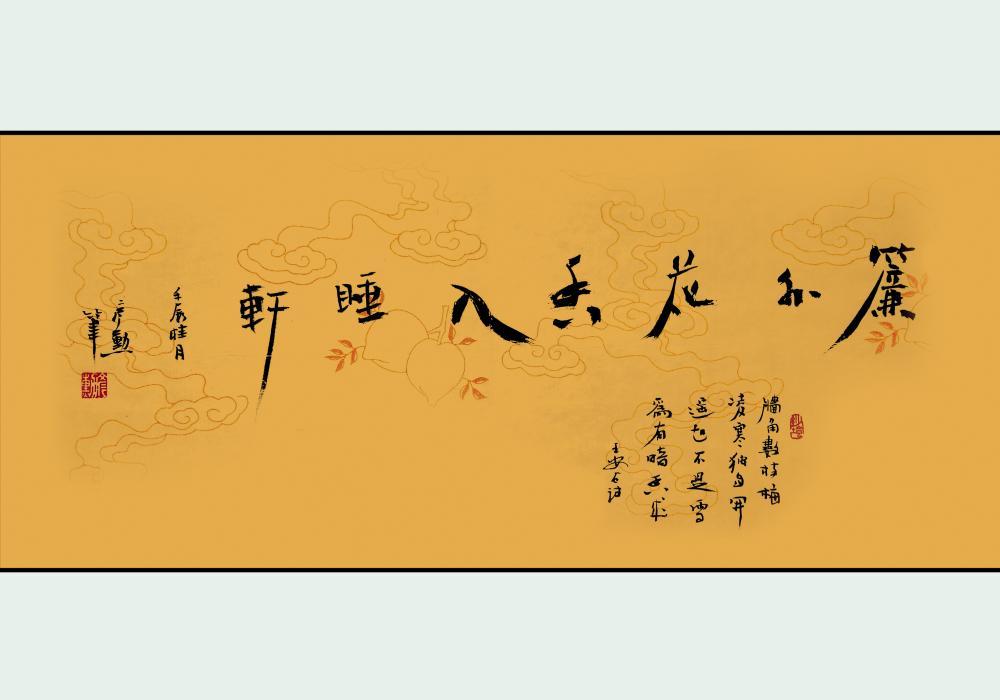 簾外花香入睡軒
牆角數枝梅
凌寒独自開
遥知不是雪
為有暗香來
王安石詩
壬辰睦月